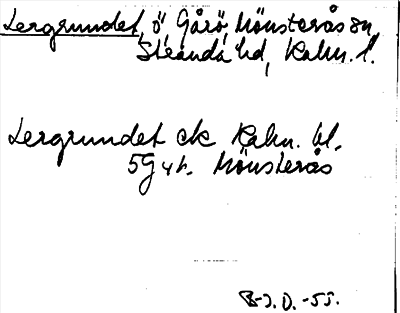 Lergrundet, ö, Gårö, Mönsterås sn,
Stranda hd, Kalm. l.
Lergrundet ek Kalm. bl.
5G 4h. Mönsterås
B-J.O. -55.